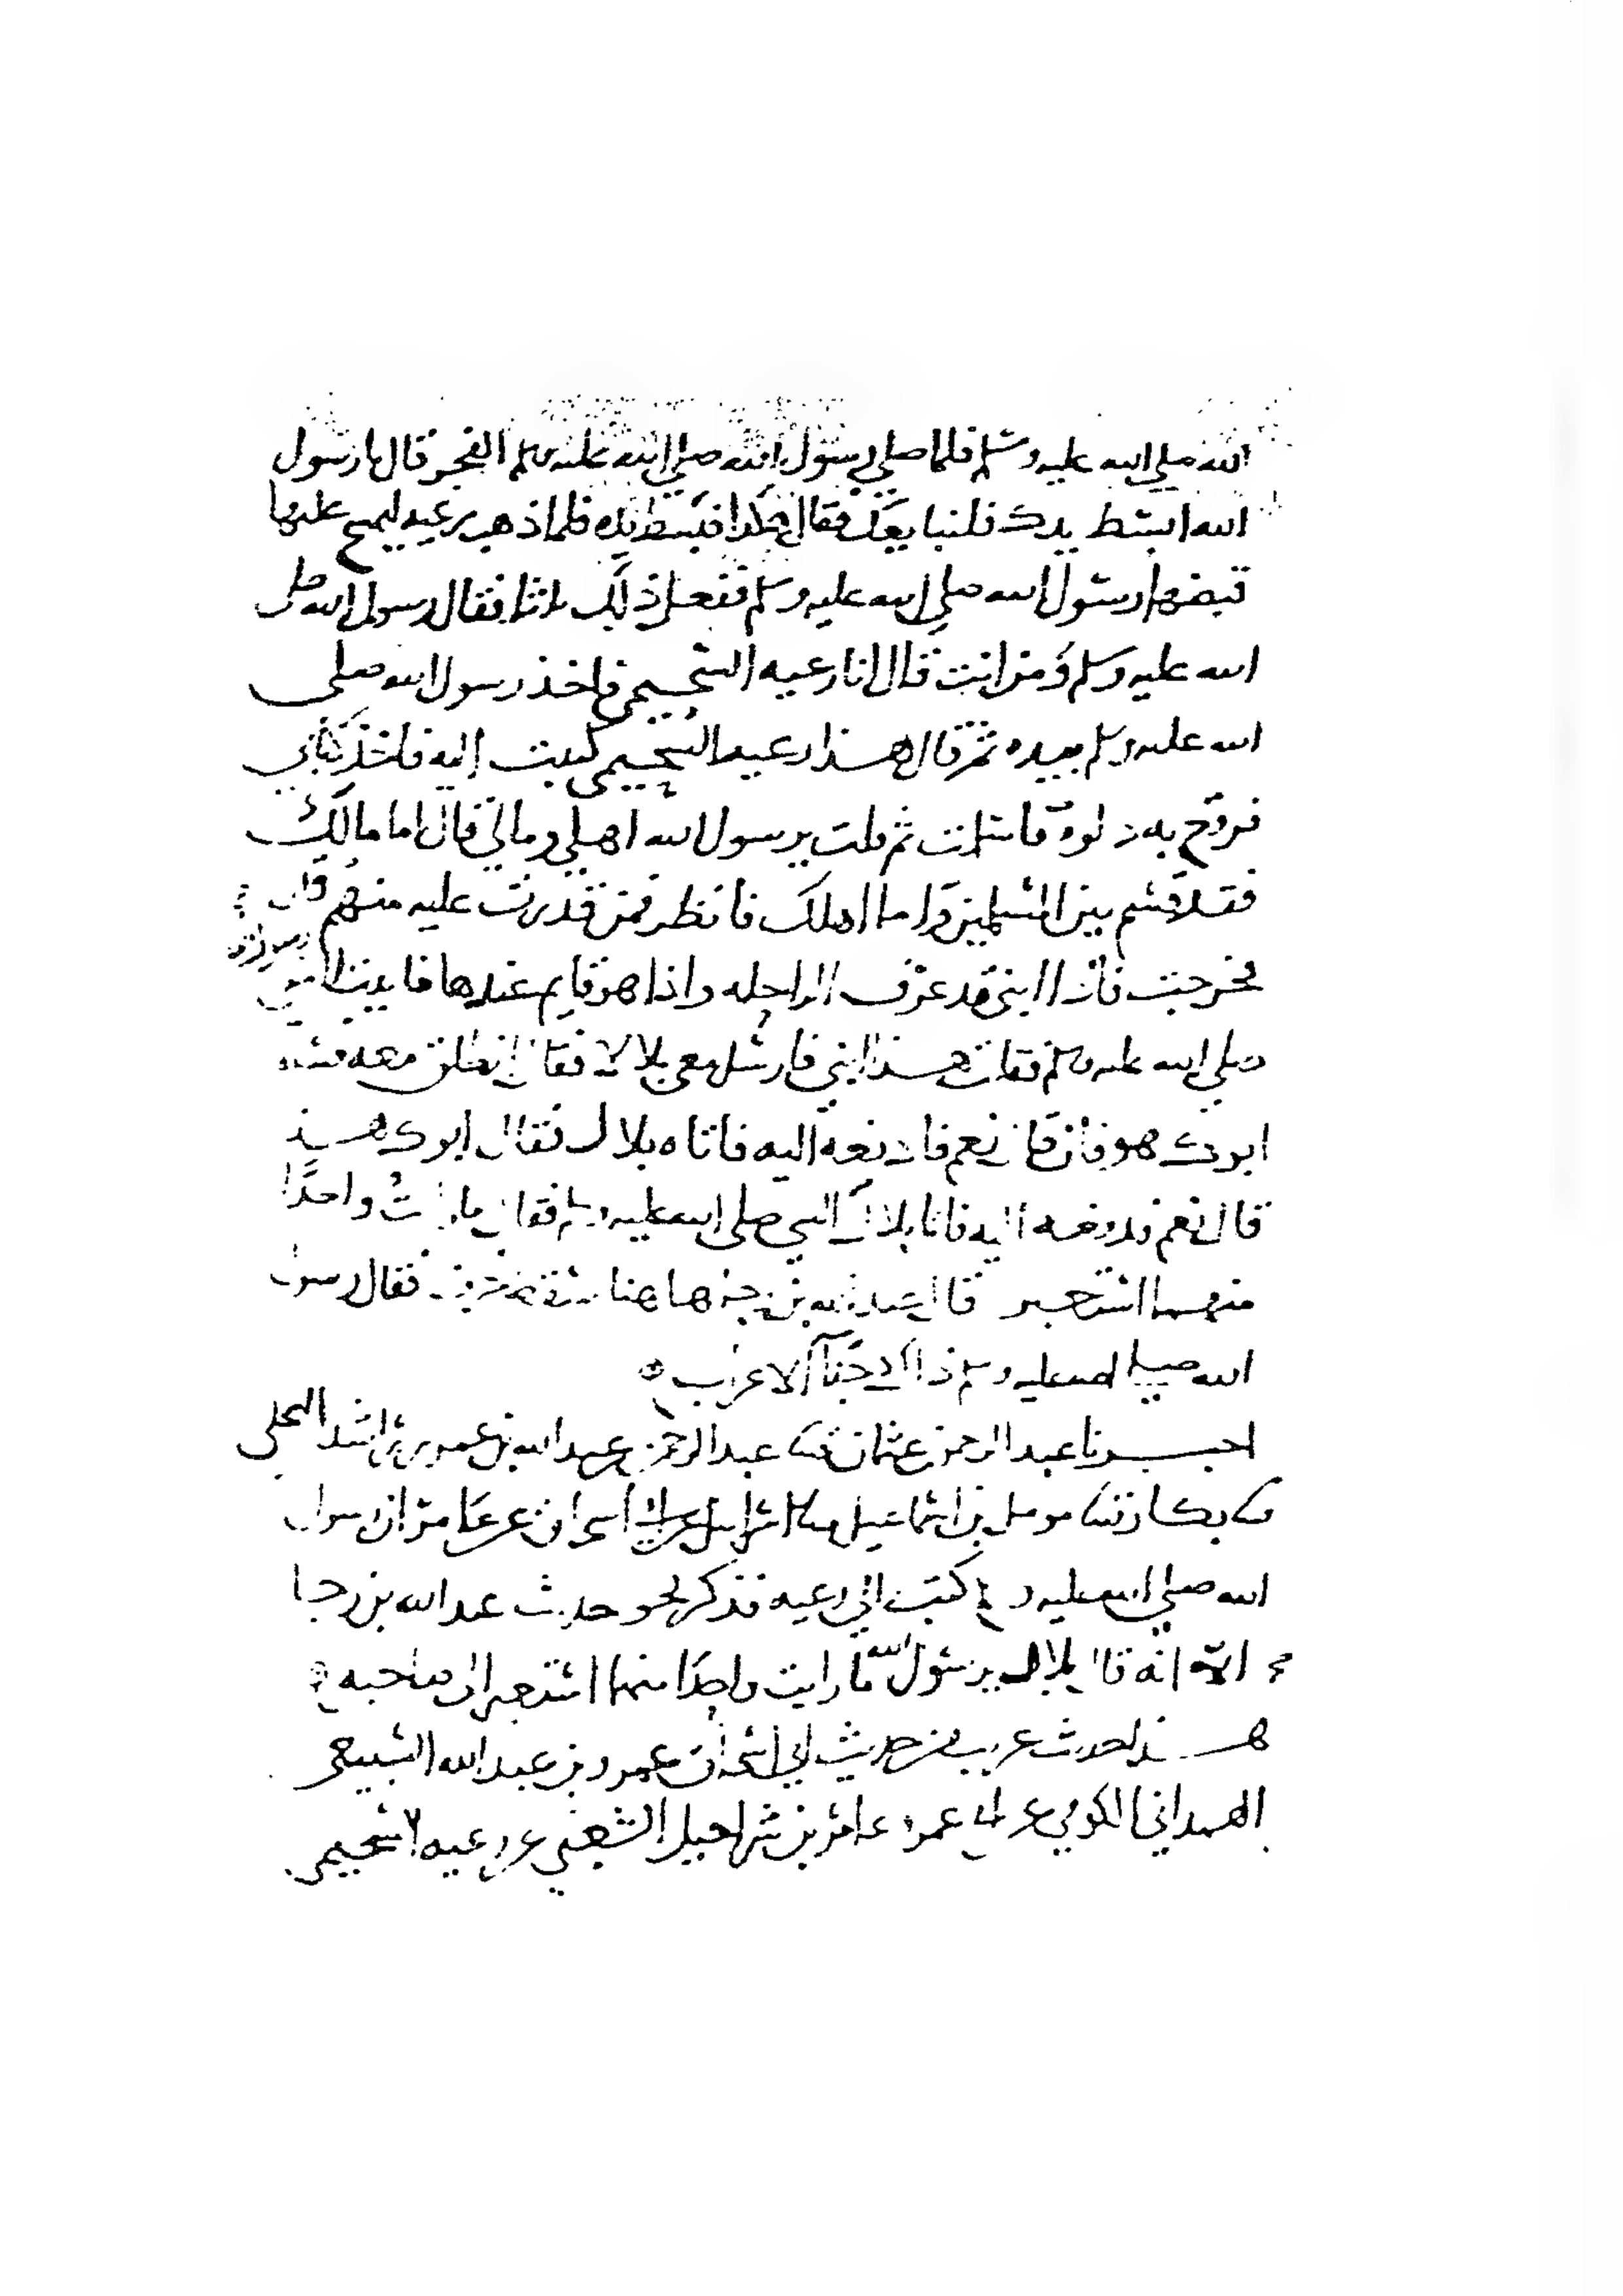 الله صلي الله عليه وسلم فلما صلي رسول الله صلي الله عليه وسلم الفجر قال يا رسول
الله ابسط يدك فلنبايعك فقال هكذا فبسط يده فلما ذهب رعيه ليمسح عليها
قبضها رسول الله صلي الله عليه وسلم ففعل ذلك ثلاثا فقال رسول الله صلى
الله عليه وسلم ومن انت قال انا رعيه السحيمي فاخذ رسول الله صلى
الله عليه وسلم بيده ثم قال هذا رعيه السحيمي كتبت اليه فاخذ كتابي
فرقع به دلوه فاسلمت ثم قلت يرسول الله اهلي ومالي قال اما مالك
فقد قسم بين المسلمين واما اهلك فانظر فمن قدرت عليه منهم قال
فخرجت فاذا ابني قد عرف الراحله واذا هو قايم عندها فاتيت رسول الله
صلي الله عليه وسلم فقلت هذا ابني فارسل معي بلالا فقال انطلق معه فسله
ابوك هو فان قال نعم فادفعه اليه فاتاه بلال فقال ابوك هذا
قال نعم فدفعه اليه فاتا بلال النبي صلى الله عليه وسلم فقال ما رايت واحدًا
منهما استعبر قال عبد الله بن رجا هاهنا فقال رسول
الله صلى الله عليه وسلم ذاك جفآ الاعراب
اخبرنا عبد الرحمن عثمان ثنا عبد الرحمن بن عبد الله بن عمر بن راشد البجلي
ثنا بكار ثنا مومل بن اسماعيل ثنا اسرايل عن ابي اسحاق عن عامر ان رسول
الله صلي الله عليه وسلم كتب الي رعيه فذكر نحو حديث عبد الله بن رجا
الا انه قال بلال يرسول الله ما رايت واحدًا منهما استعبر الى صاحبه
هذا حديث غريب من حديث ابي اسحاق عمرو بن عبد الله السبيعي
الهمداني الكوفي عن ابي عمرو عامر بن شراحيل الشعبي عن رعيه السحيمي